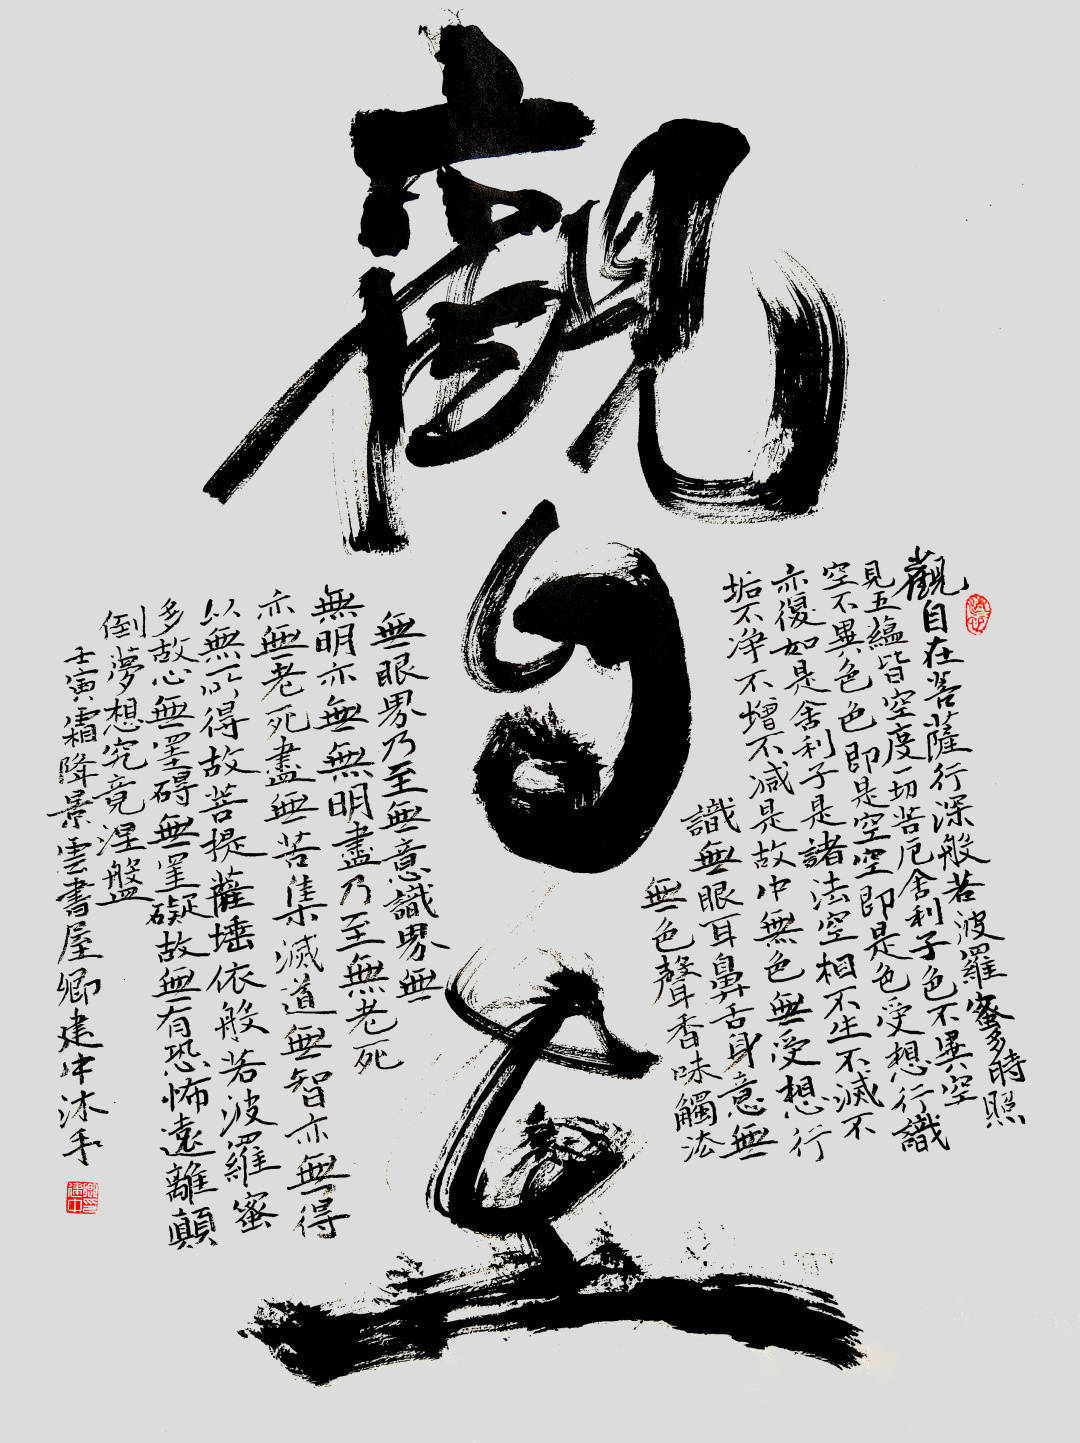 觀自在
觀自在菩薩行深般若波羅蜜多時照
見五蘊皆空度一切苦厄舍利子色不異空
空不異色色即是空空即是色受想行識
亦復如是舍利子是諸法空相不生不滅不
垢不净不增不减是故中無色無受想行
識無眼耳鼻舌身意無
無色聲香味觸法
無眼界乃至無意識界無
無明亦無無明盡乃至無老死
亦無老死盡無苦集滅道無智亦無得
以無所得故菩提薩埵依般若波羅蜜
多故心無罣碍無罣礙故無有恐怖遠離顛
倒夢想究竟涅盤
壬寅霜降景雲書屋卿建中沐手